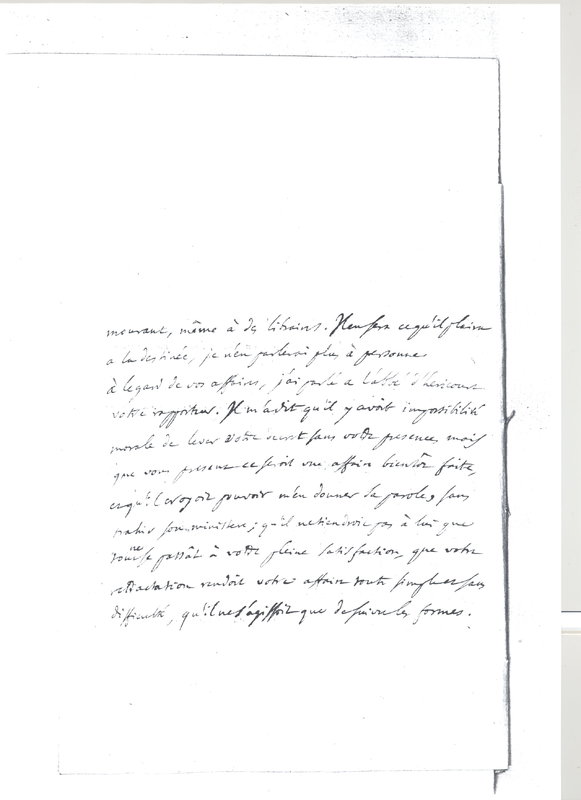 mourant, même à des libraires. Il en sera ce qu'il plaira
a la destinée, je n'en parlerai plus à personne
à legard de vos affaires, j'ai parlé a l'abbé d'hericourt
votre rapporteur. Il m'a dit qu'il y avoit impossibilité
morale de lever votre decret sans votre presence, mais
que vous present ce seroit une affaire bientôt faite,
et qu'il croyoit pouvoir m'en donner sa parole, sans
trahir son ministere; qu'il ne tiendroit pas à lui que
tout ne se passât à votre pleine satisfaction, que votre
retractation rendoit votre affaire toute simple et sans
difficulté, qu'il ne s'agissoit que de suivre les formes.